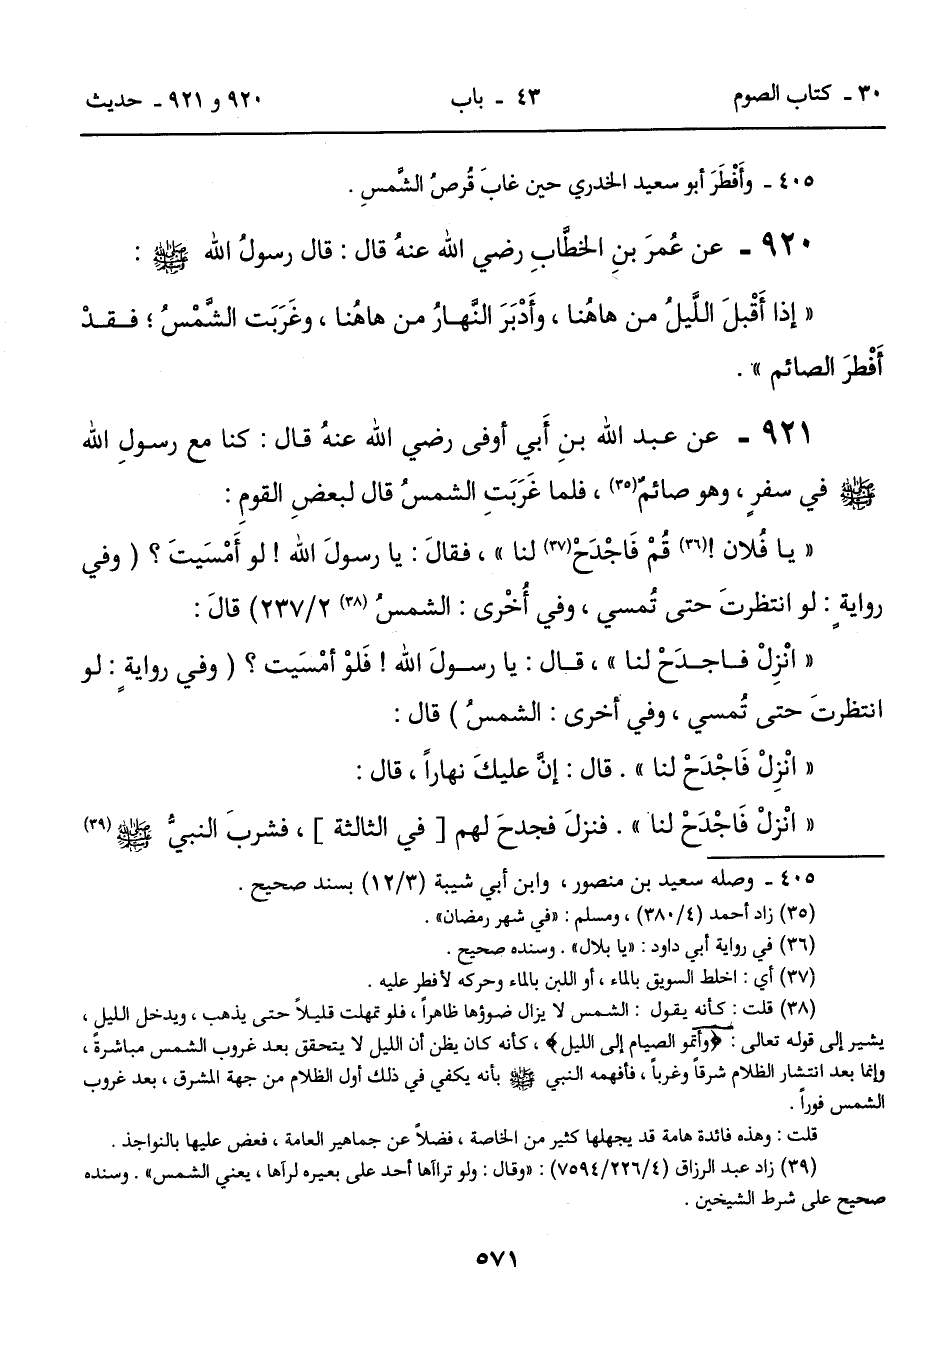 ٣٠ ـ كتاب الصوم ٤٣ ـ باب ٩٢٠ و ٩٢١ ـ حديث
٤٠٥ ـ وأَفْطَرَ أبو سعيد الخدري حين غابَ قُرصُ الشَّمسِ .
٩٢٠ ـ عن عُمرَ بنِ الخطَّابِ رضي الله عنهُ قال : قال رسولُ الله ﷺ :
« إذا أَقْبلَ اللَّيلُ من هاهُنا ، وأَدْبَرَ النَّهارُ من هاهُنا ، وغَرَبَت الشَّمْسُ ؛ فقدْ
أَفْطرَ الصائم » .
٩٢١ ـ عن عبد الله بنِ أَبي أوفى رضي الله عنهُ قال : كنا مع رسولِ الله
ﷺ في سفرٍ ، وهو صائمٌ(٣٥) ، فلما غَرَبَتِ الشمسُ قال لبعضِ القومِ :
« يا فُلان !(٣٦) قُمْ فَاجْدَحْ(٣٧) لنا » ، فقالَ : يا رسولَ الله ! لو أَمْسَيتَ ؟ ( وفي
روايةٍ : لو انتظرتَ حتى تُمسي ، وفي أُخْرى : الشمسُ (٣٨) ٢٣٧/٢) قالَ :
« انْزِلْ فاجدَحْ لنا » ، قال : يا رسولَ الله ! فَلَوْ أمْسَيت ؟ ( وفي روايةٍ : لو
انتظرتَ حتى تُمسي ، وفي أخرى : الشمسُ ) قال :
« انْزِلْ فَاجْدَحْ لنا » . قال : إنَّ عليكَ نهاراً ، قال :
« انْزِلْ فَاجْدَحْ لنا » . فنزلَ فجدحَ لهم [ في الثالثة ] ، فشربَ النبيُّ ﷺ (٣٩)
٤٠٥ ـ وصله سعيد بن منصور، وابن أبي شيبة (١٢/٣) بسند صحيح .
(٣٥) زاد أحمد (٣٨٠/٤) ، ومسلم : «في شهر رمضان» .
(٣٦) في رواية أبي داود : «يا بلال» . وسنده صحيح .
(٣٧) أي : اخلط السويق بالماء ، أو اللبن بالماء وحركه لأفطر عليه .
(٣٨) قلت : كأنه يقول : الشمس لا يزال ضوؤها ظاهراً ، فلو تمهلت قليلاً حتى يذهب ، ويدخل الليل ،
يشير إلى قوله تعالى : ﴿وأتمو الصيام إلى الليل﴾ ، كأنه كان يظن أن الليل لا يتحقق بعد غروب الشمس مباشرة ،
وإنما بعد انتشار الظلام شرقاً وغرباً ، فأفهمه النبي ﷺ بأنه يكفي في ذلك أول الظلام من جهة المشرق ، بعد غروب
الشمس فوراً .
قلت : وهذه فائدة هامة قد يجهلها كثير من الخاصة ، فضلاً عن جماهير العامة ، فعض عليها بالنواجذ .
(٣٩) زاد عبد الرزاق (٧٥٩٤/٢٢٦/٤) : «وقال : ولو تراآها أحد على بعيره لرآها ، يعني الشمس» . وسنده
صحيح على شرط الشيخين .
٥٧١